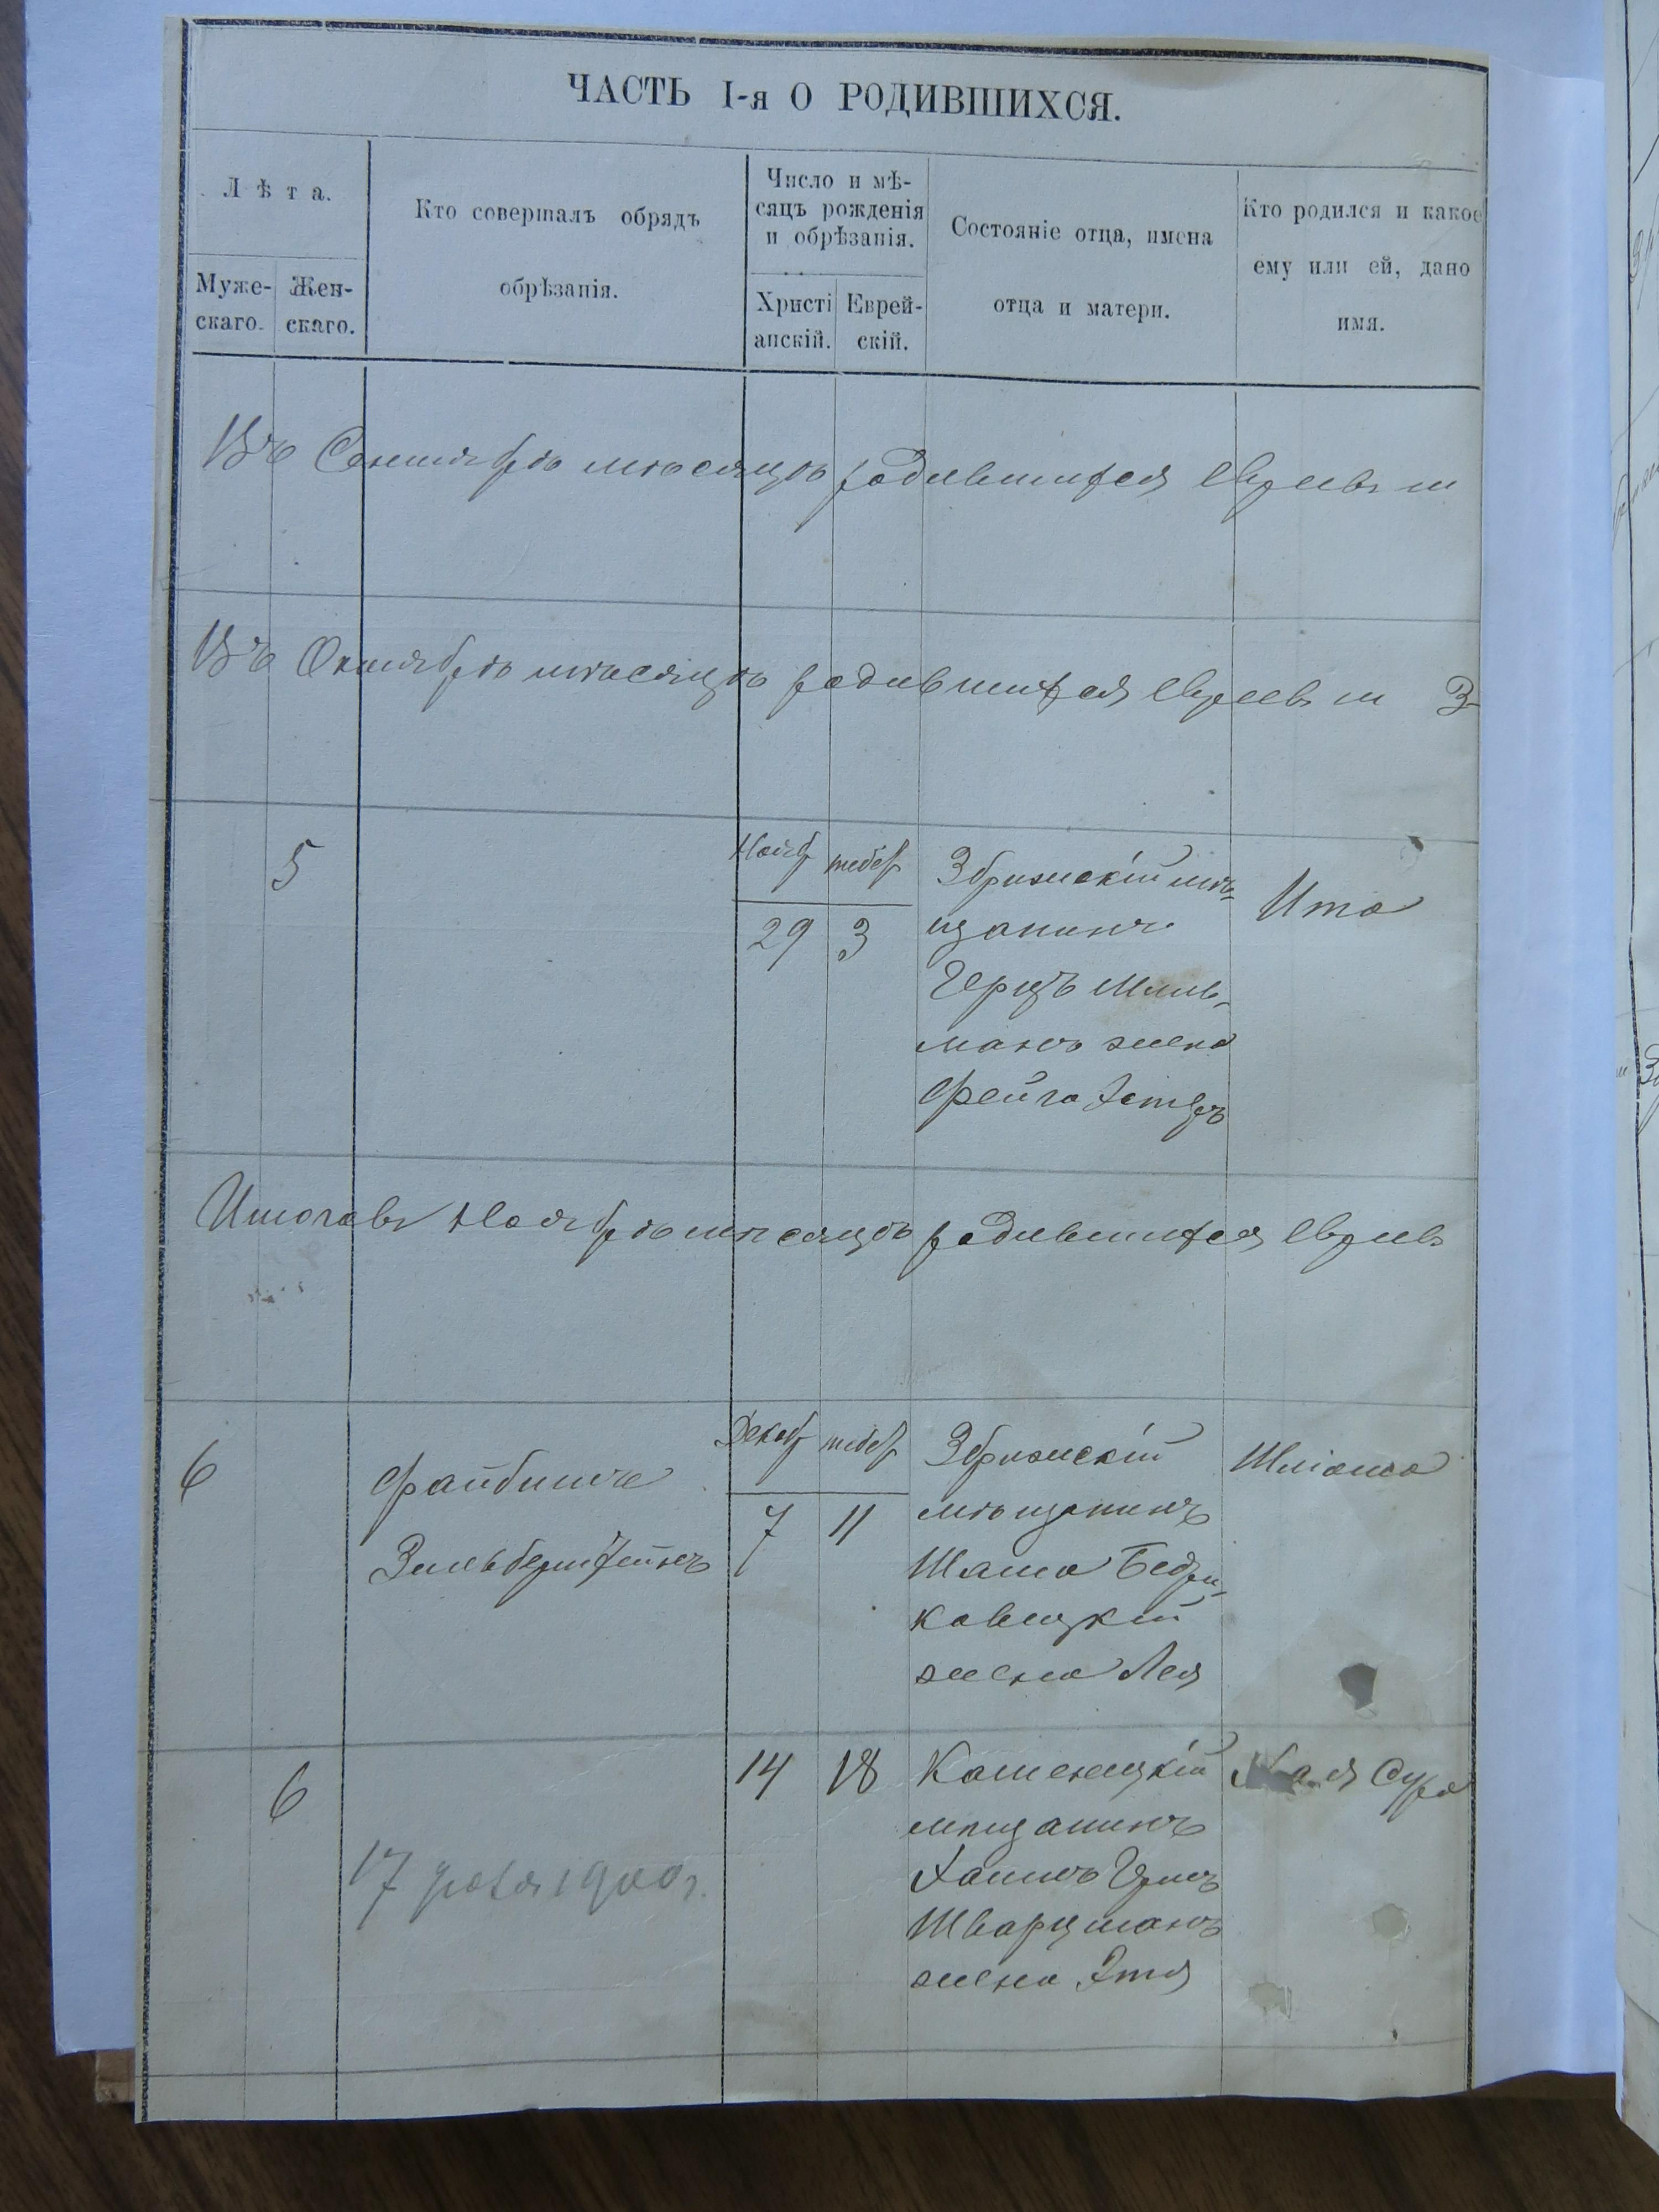 ЧАСТЬ I-я О РОДИВШИХСЯ.
Лѣта.
Муже-
скаго.
Жен-
скаго.
Кто совершалъ обрядъ
обрѣзанія.
Число и мѣ-
сяцъ рожденія
и обрѣзанія.
Христі
анскій.
Еврей-
скій.
Состояніе отца, имена
отца и матери.
Кто родился и какое
ему или ей, дано
имя.
Въ Сентябрѣ мѣсяцѣ родившихся евреевъ
Въ Октябрѣ мѣсяцѣ родившихся евреевъ
5
Нояб
29
тебет
3
Збрижскій мѣ-
щанинъ
Герцъ Миль-
манъ жена
Фейга Эстеръ
Ита
Итого въ Ноябрѣ мѣсяцѣ родившихся евреевъ
6
Файбишъ
Зильберштейнъ
Декаб
7
тебет
11
Збрижскій
мѣщанинъ
Шама Бедри-
ковецкій
жена Лея
Шліома
6
17
1900г.
14
18
Каменецкій
мѣщанинъ
Хаимъ
Шварцманъ
жена Этя
Сура